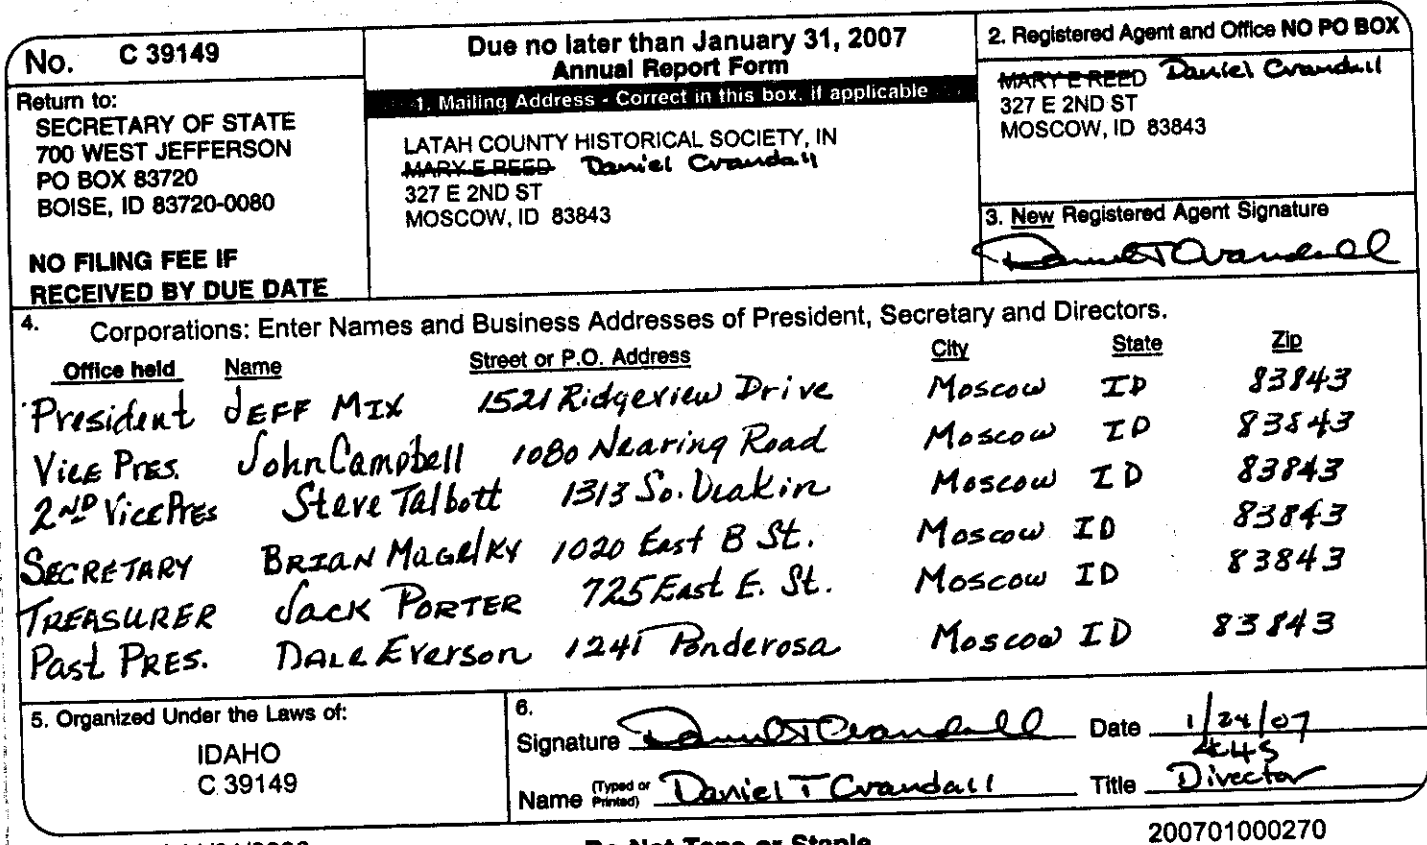 No. C 39149
Return to:
SECRETARY OF STATE
700 WEST JEFFERSON
PO BOX 83720
BOISE, ID 83720-0080
NO FILING FEE IF
RECEIVED BY DUE DATE
Due no later than January 31, 2007
Annual Report Form
1. Mailing Address - Correct in this box, if applicable
LATAH COUNTY HISTORICAL SOCIETY, IN
MARY E REED Daniel Crandall
327 E 2ND ST
MOSCOW, ID 83843
2. Registered Agent and Office NO PO BOX
MARY E REED Daniel Crandall
327 E 2ND ST
MOSCOW, ID 83843
3. New Registered Agent Signature
Daniel T Crandall
4. Corporations: Enter Names and Business Addresses of President, Secretary and Directors.
Office held Name Street or P.O. Address City State Zip
President JEFF MIX 1521 Ridgeview Drive Moscow ID 83843
Vice Pres. John Campbell 1080 Nearing Road Moscow ID 83843
2ND Vice Pres Steve Talbott 1313 So. Deakin Moscow ID 83843
SECRETARY BRIAN Magelky 1020 East B St. Moscow ID 83843
TREASURER Jack PORTER 725 East E. St. Moscow ID 83843
Past PRES. DALE Everson 1241 Ponderosa Moscow ID 83843
5. Organized Under the Laws of:
IDAHO
C 39149
6.
Signature Daniel T Crandall Date 1/24/07
Name (Typed or Printed) Daniel T Crandall Title LCHS Director
Do Not Tape or Staple
200701000270